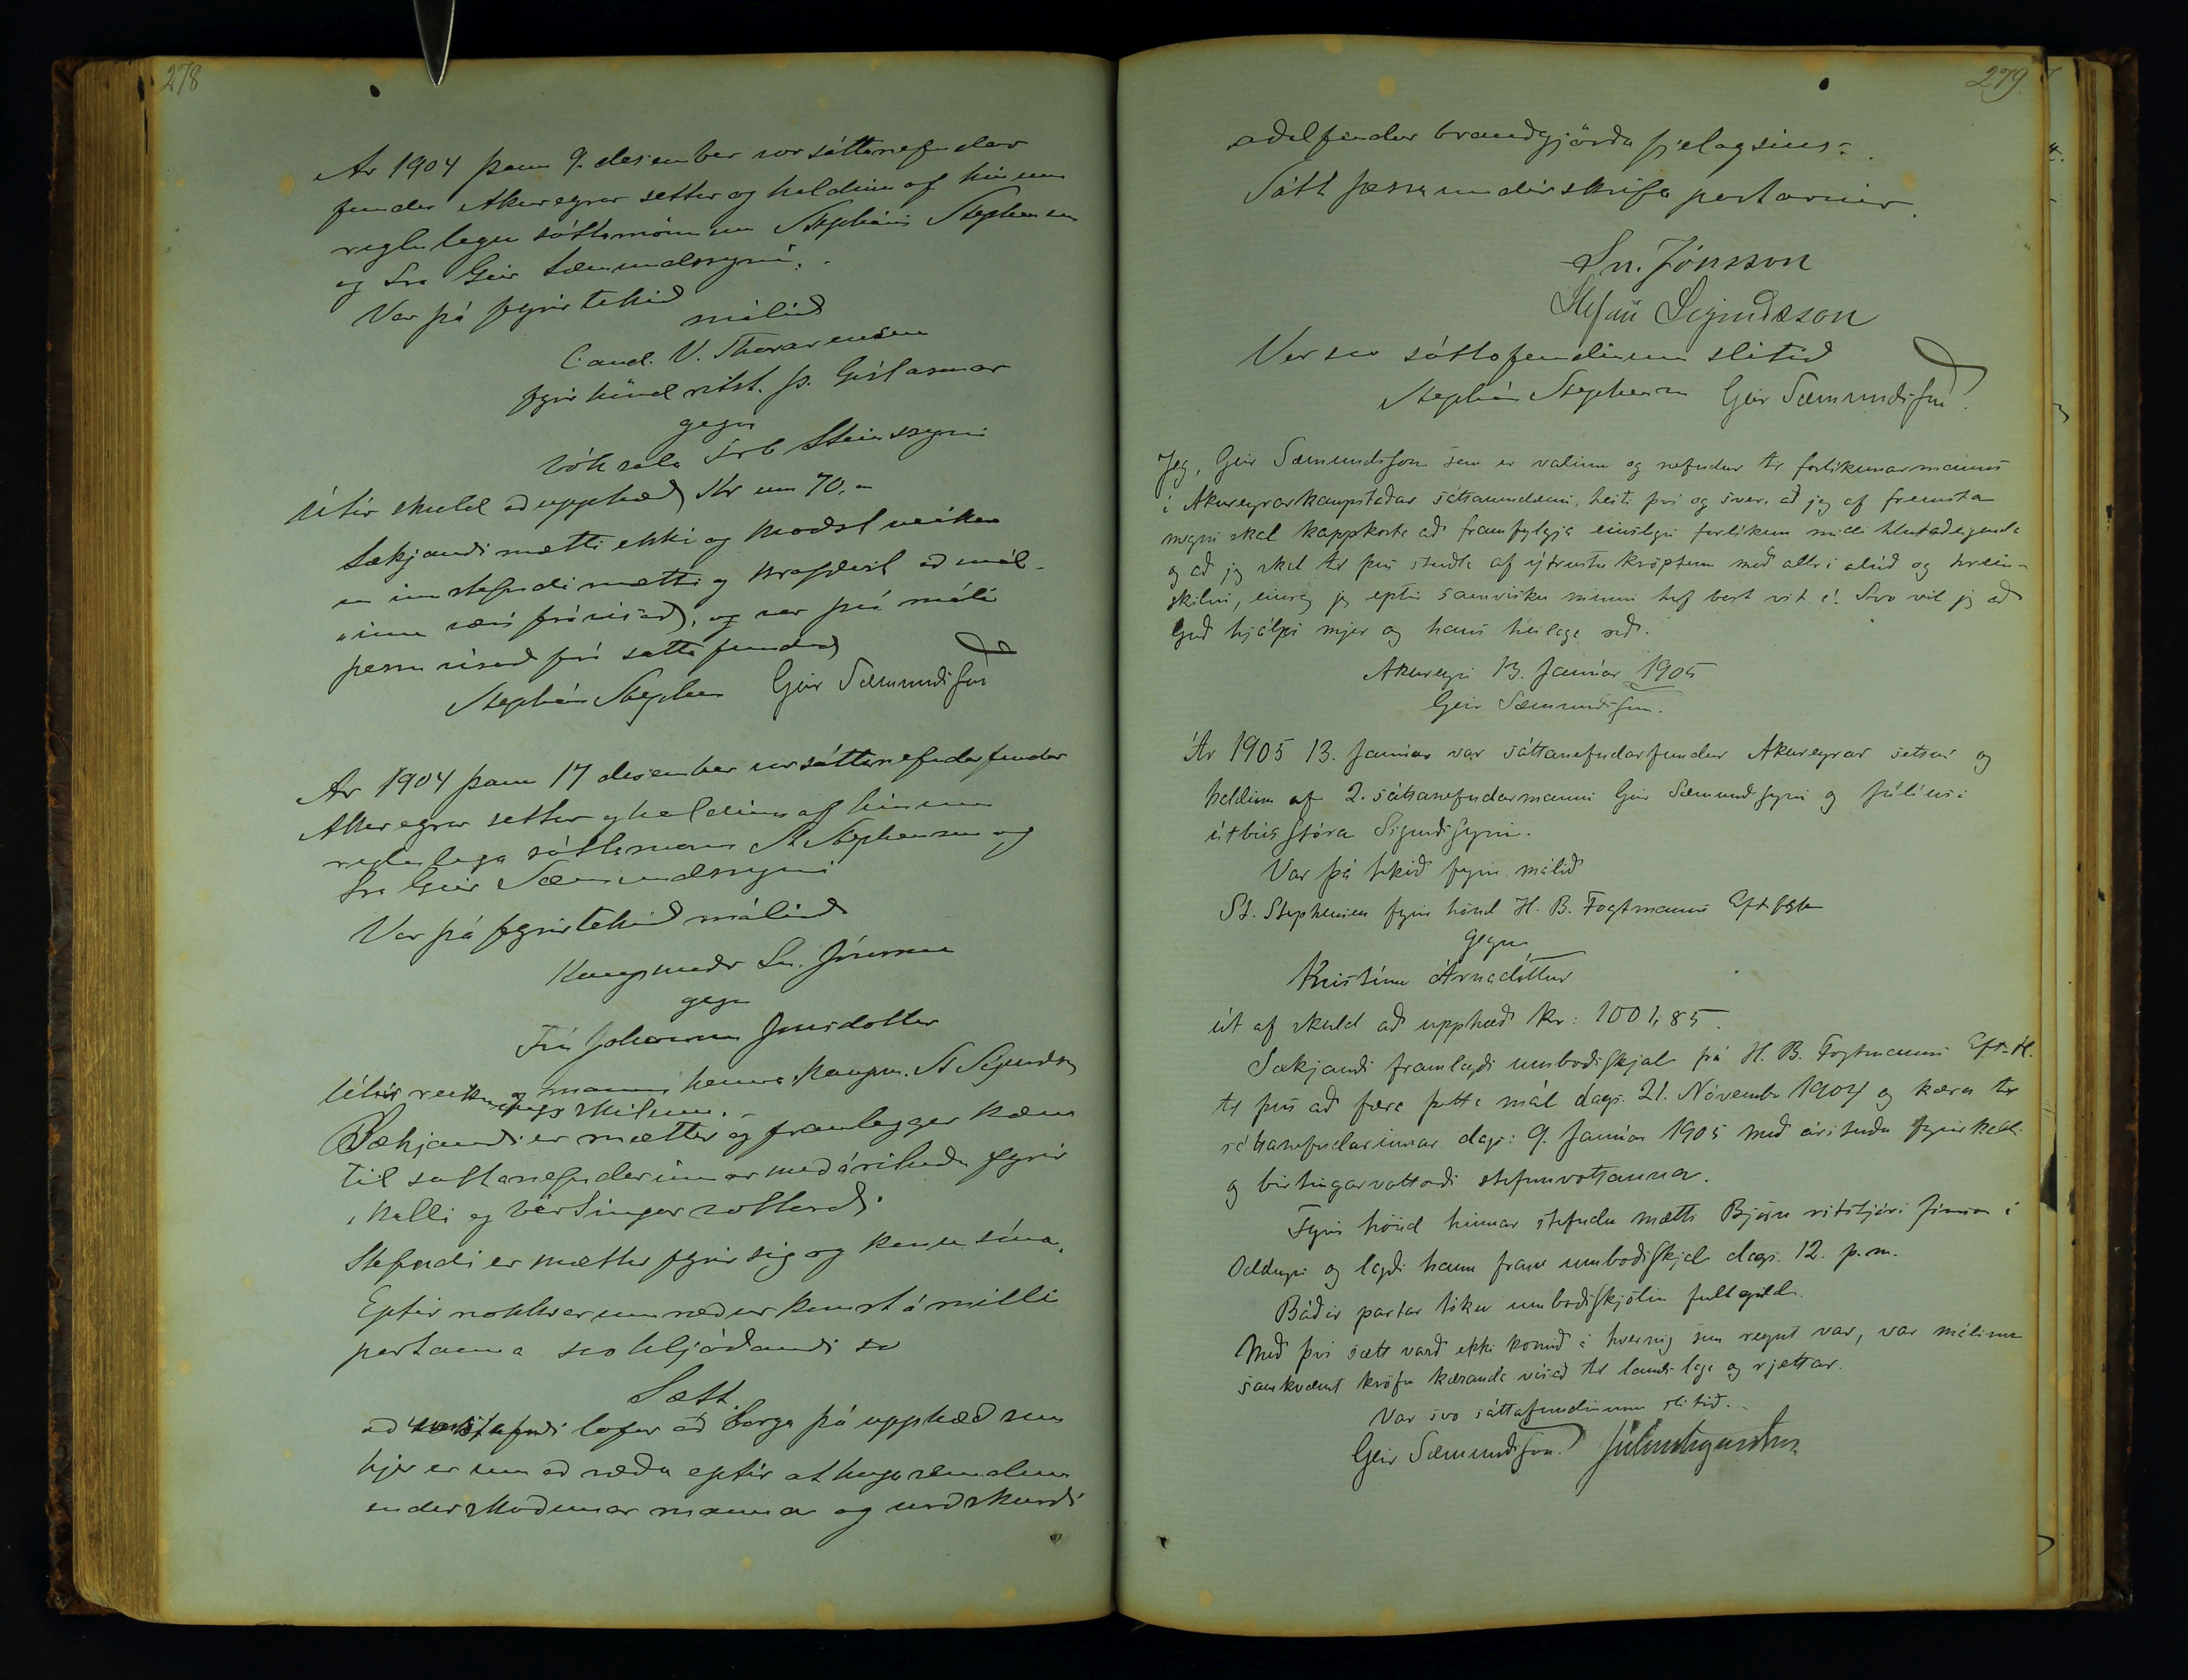 278
Ár 1904 þann 9. desember var sáttanefndar
fundur Akureyrar settur og haldinn af hinum
reglulegu sáttamönnum Stepháni Stephensen
og Sra Geir Sæmundssyni.
Var þá fyrirtekið
málið
Cand. V. Thorarensen
fyrir hönd ritst. Þ. Gíslasonar
gegn
bóksala Frb Steinssyni
Útúr skuld að upphæð Kr um 70,-
Sækjandi mætti ekki og
en inn stefndi mætti og krafðist að mál-
"inu væri frávísað, og var því máli
þessu vísað frá sáttafundi
Stephán Stephensen Geir Sæmundsson
Ár 1904 þann 17 desember var sáttanefndarfundur
Akureyrar settur og haldinn af hinum
reglulega sáttamönnum St Stephensen og
Sra Geir Sæmundssyni
Var þá fyrirtekið málið
Kaupmaðr Sn. Jónsson
gegn
Frú Jóhönnu Jónsdóttur
og manni hennar kaupm. St Sigurðss
Útúr reikningsskilum.-
Sækjandi er mættur og framleggur kæru
til sáttanefndarinnar með árituðu fyrir
"kalli og birtingar vottorði
Stefndi er mættur fyrir sig og konu sína.
Eptir nokkrar umræður komst á milli
partanna svo hljóðandi
Sátt.
að stefndi lofar að borga þá upphæð sem
hjer er um að ræða eptir athugasemdum
endurskoðunar manna og úrskurði
279.
aðalfundar brauðgjörða fjelagsins-.
Sátt þessa undirskrifa partarnir.
Sn. Jónsson
Stefán Sigurðsson
Var svo sáttafundinum slitið
Stephán Stephensen Geir Sæmundsson.
Jeg, Geir Sæmundsson sem er valinn og nefndur til forlíkunarmanns
í Akureyrarkaupstaðar sáttaumdæmi, heiti því og sver, að jeg af fremsta
megni skal kappkosta að framfylgja einlægri forlíkun milli hlutaðeigenda
og að jeg skal til þess stuðla af ýtrustu kröptum með allri alúð og hrein-
skilni, einsog jeg eptir samvisku minni hef best vit á. Svo vil jeg að
Guð hjálpi mjer og hans heilaga orð.
Akureyri 13. Janúar 1905
Geir Sæmundsson.
Ár 1905 13. Janúar var sáttanefndarfundur Akureyrar settur og
haldinn af 2. sáttanefndarmanni Geir Sæmundssyni og Júlíusi
útbússtjóra Sigurðssyni.
Var þá tekið fyrir málið
St. Stephensen fyrir hönd H. B. Fogtmanns Eftflgr
gegn
Kristínu Árnadóttur
út af skuld að upphæð kr: 1001,85.
Sækjandi framlagði umboðsskjal frá H. B. Fogtmanns Eft-fl.
til þess að færa þetta mál dags. 21. Nóvember 1904 og kæru til
sáttanefndarinnar dags: 9. Janúar 1905 með árituðu fyrirkalli
og birtingarvottorði stefnuvottanna.
Fyrir hönd hinnar stefndu mætti Björn ritstjóri Jónsson í
Oddeyri og lagði hann fram umboðsskjal dags. 12. þ.m.
Báðir partar tóku umboðsskjölin fullgild.
Með því sætt varð ekki komið á hvernig sem reynt var, var málinu
samkvæmt kröfu kæranda vísað til lands laga og rjettar.
Var svo sáttafundinum slitið.-
Geir Sæmundsson. Júlíus Sigurðsson